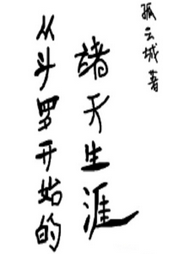 从斗罗开始的
诸天生涯
孤云城著